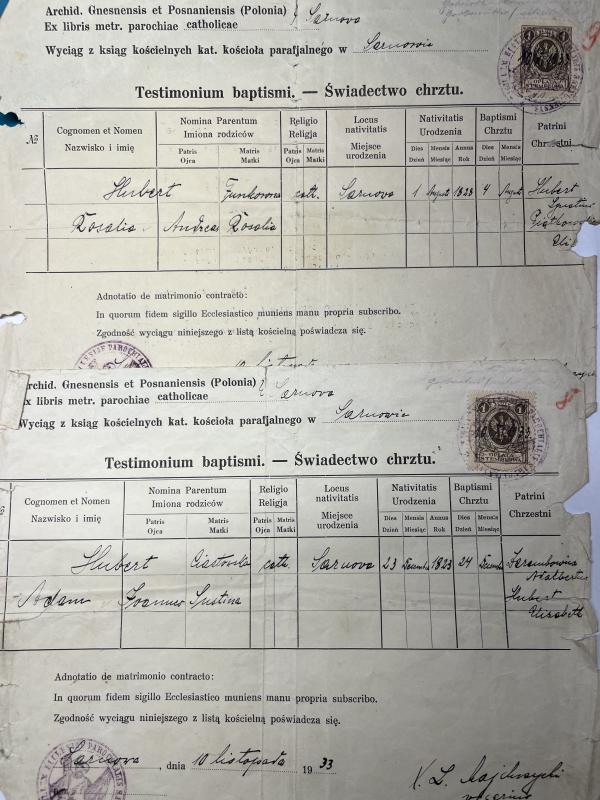 Archid. Gnesnensis et Posnaniensis (Polonia)
Ex libris metr. parochiae catholicae } Sarnova
Wyciąg z ksiąg kościelnych kat. kościoła parafjalnego w Sarnowie
Testimonium baptismi. — Świadectwo chrztu.
№ Cognomen et Nomen Nazwisko i imię Nomina Parentum Imiona rodziców Religio Religja Locus nativitatis Miejsce urodzenia Nativitatis Urodzenia Baptismi Chrztu Patrini Chrzestni
Patris Ojca Matris Matki Patris Ojca Matris Matki Dies Dzień Mensis Miesiąc Annus Rok Dies Dzień Mensis Miesiąc
Hubert cath. Sarnova 1 August 1823 4 August Hubert
Rosalia Andreas Rosalia
Adnotatio de matrimonio contracto:
In quorum fidem sigillo Ecclesiastico muniens manu propria subscribo.
Zgodność wyciągu niniejszego z listą kościelną poświadcza się.
10 listopada
Archid. Gnesnensis et Posnaniensis (Polonia)
Ex libris metr. parochiae catholicae } Sarnova
Wyciąg z ksiąg kościelnych kat. kościoła parafjalnego w Sarnowie
Testimonium baptismi. — Świadectwo chrztu.
Cognomen et Nomen Nazwisko i imię Nomina Parentum Imiona rodziców Religio Religja Locus nativitatis Miejsce urodzenia Nativitatis Urodzenia Baptismi Chrztu Patrini Chrzestni
Patris Ojca Matris Matki Patris Ojca Matris Matki Dies Dzień Mensis Miesiąc Annus Rok Dies Dzień Mensis Miesiąc
Hubert cath. Sarnova 23 Decemb 1823 24 Decemb
Adalbertus
Adam Joannes Justina Hubert
Elisabeth
Adnotatio de matrimonio contracto:
In quorum fidem sigillo Ecclesiastico muniens manu propria subscribo.
Zgodność wyciągu niniejszego z listą kościelną poświadcza się.
Sarnova, dnia 10 listopada 1933